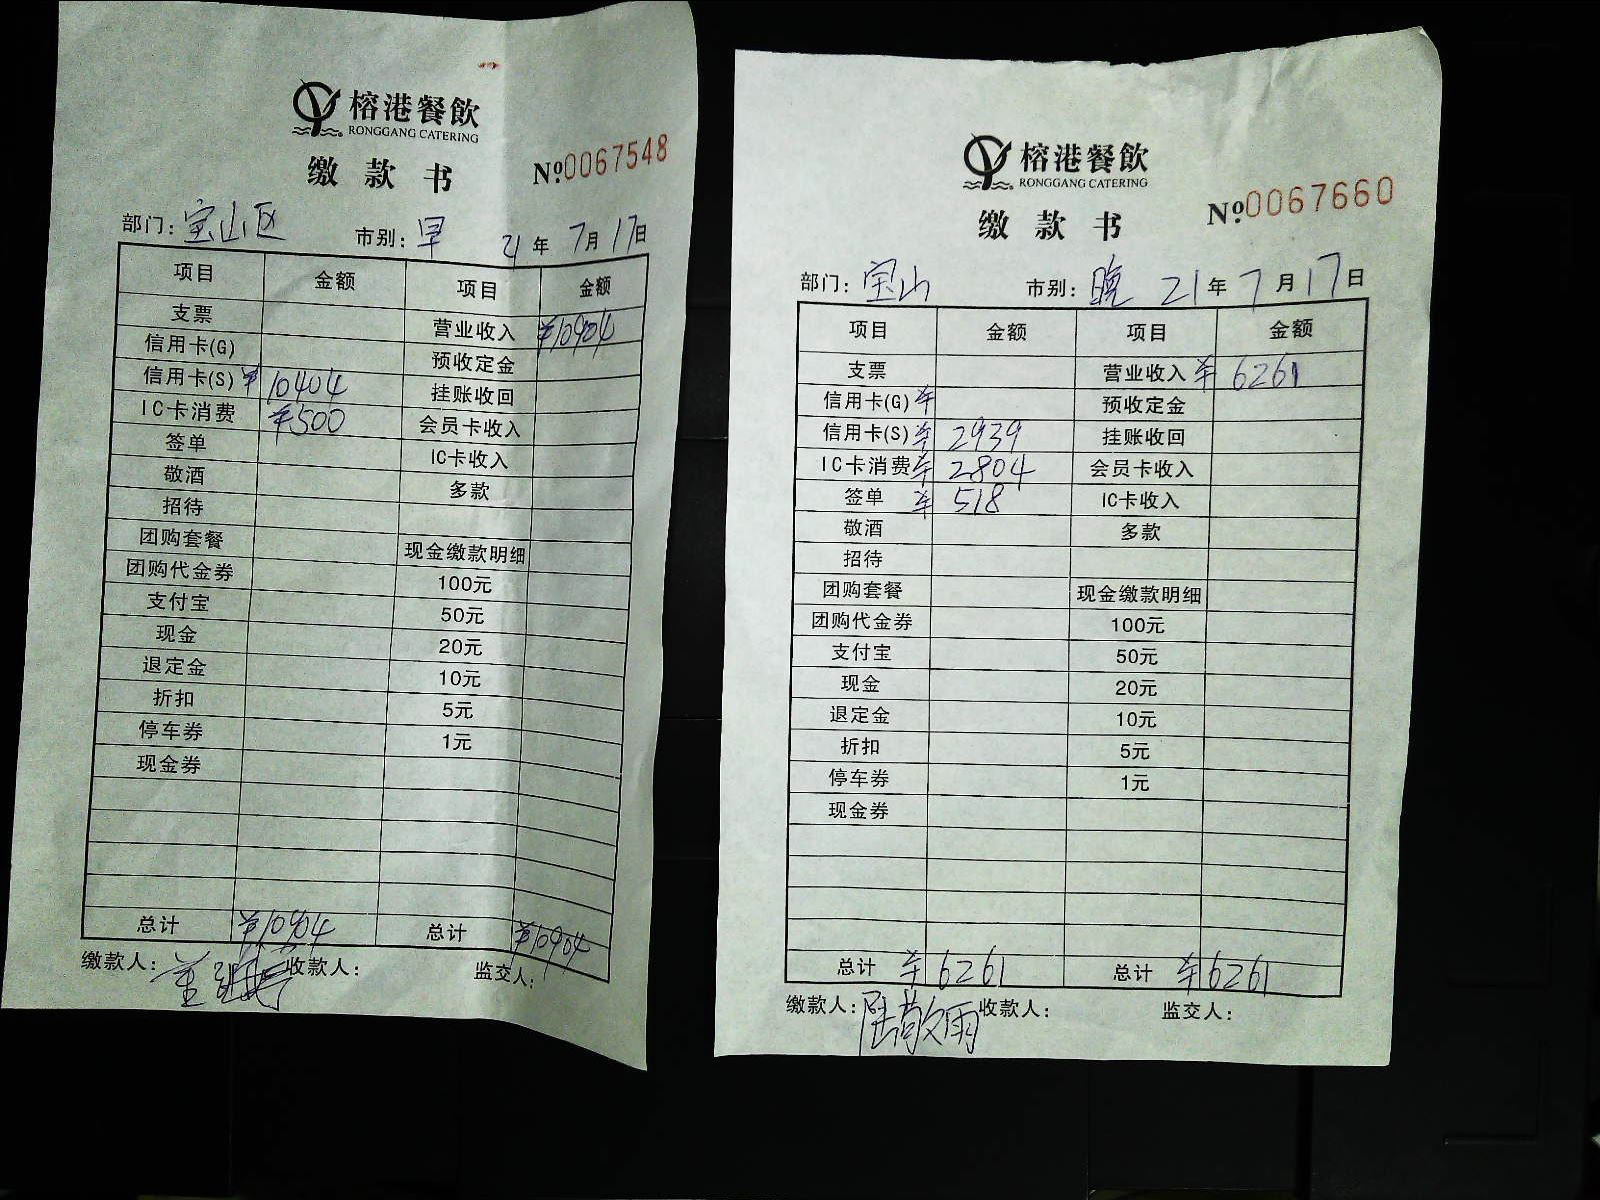 榕港餐飲
RONGGANG CATERING
缴款书
№0067548
部门：宝山区 市别：早 21年7月17日
项目 金额 项目 金额
支票 营业收入 ¥10904
信用卡(G) 预收定金
信用卡(S) ¥10404 挂账收回
IC卡消费 ¥500 会员卡收入
签单 IC卡收入
敬酒 多款
招待
团购套餐 现金缴款明细
团购代金券 100元
支付宝 50元
现金 20元
退定金 10元
折扣 5元
停车券 1元
现金券
总计 ¥10904 总计 ¥10904
缴款人： 收款人： 监交人：
榕港餐飲
RONGGANG CATERING
缴款书
№0067660
部门：宝山 市别：晚 21年7月17日
项目 金额 项目 金额
支票 营业收入 ¥6261
信用卡(G) ¥ 预收定金
信用卡(S) ¥2939 挂账收回
IC卡消费 ¥2804 会员卡收入
签单 ¥518 IC卡收入
敬酒 多款
招待
团购套餐 现金缴款明细
团购代金券 100元
支付宝 50元
现金 20元
退定金 10元
折扣 5元
停车券 1元
现金券
总计 ¥6261 总计 ¥6261
缴款人：陆敬雨 收款人： 监交人：